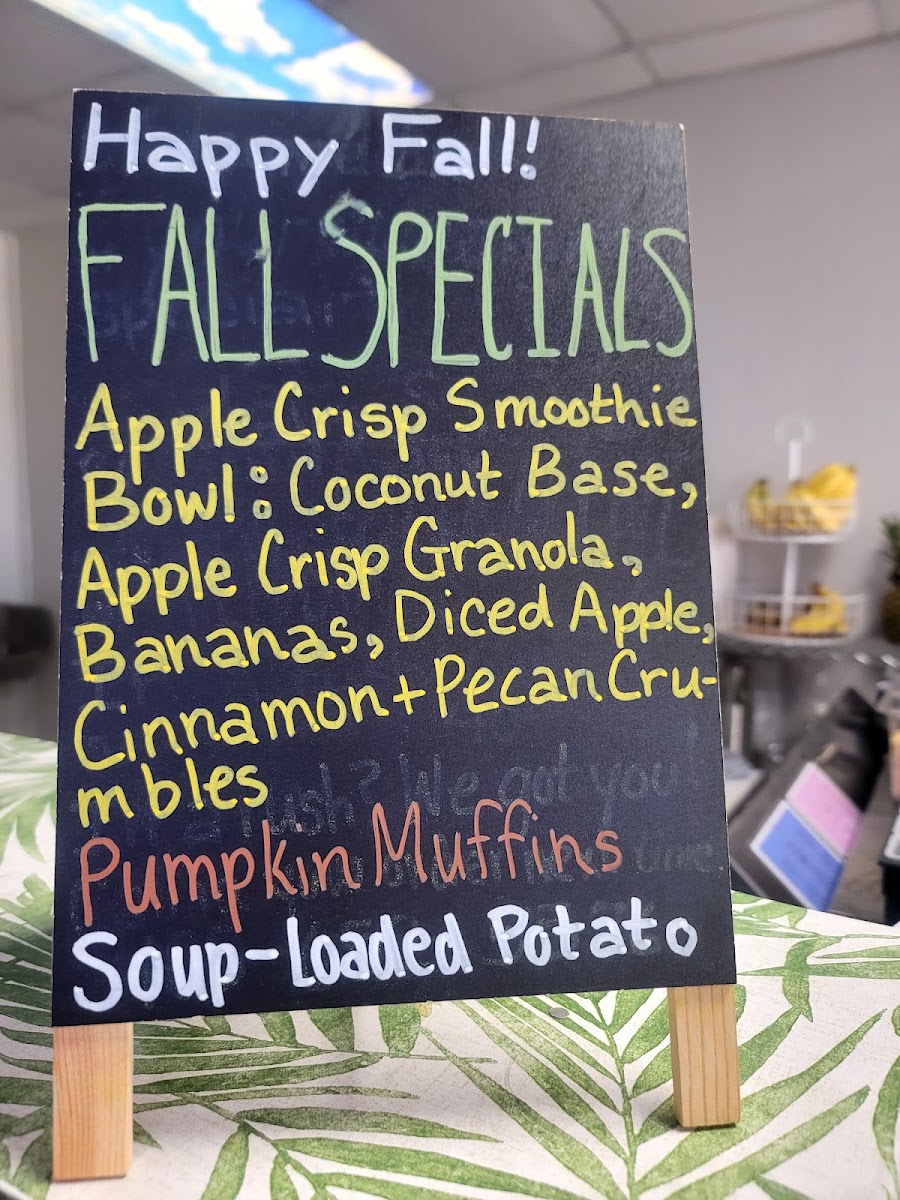 Happy Fall!
FALL SPECIALS
Apple Crisp Smoothie
Bowl: Coconut Base,
Apple Crisp Granola,
Bananas, Diced Apple,
Cinnamon + Pecan Cru-
mbles
rush? We got you!
Pumpkin Muffins
time
Soup-Loaded Potato